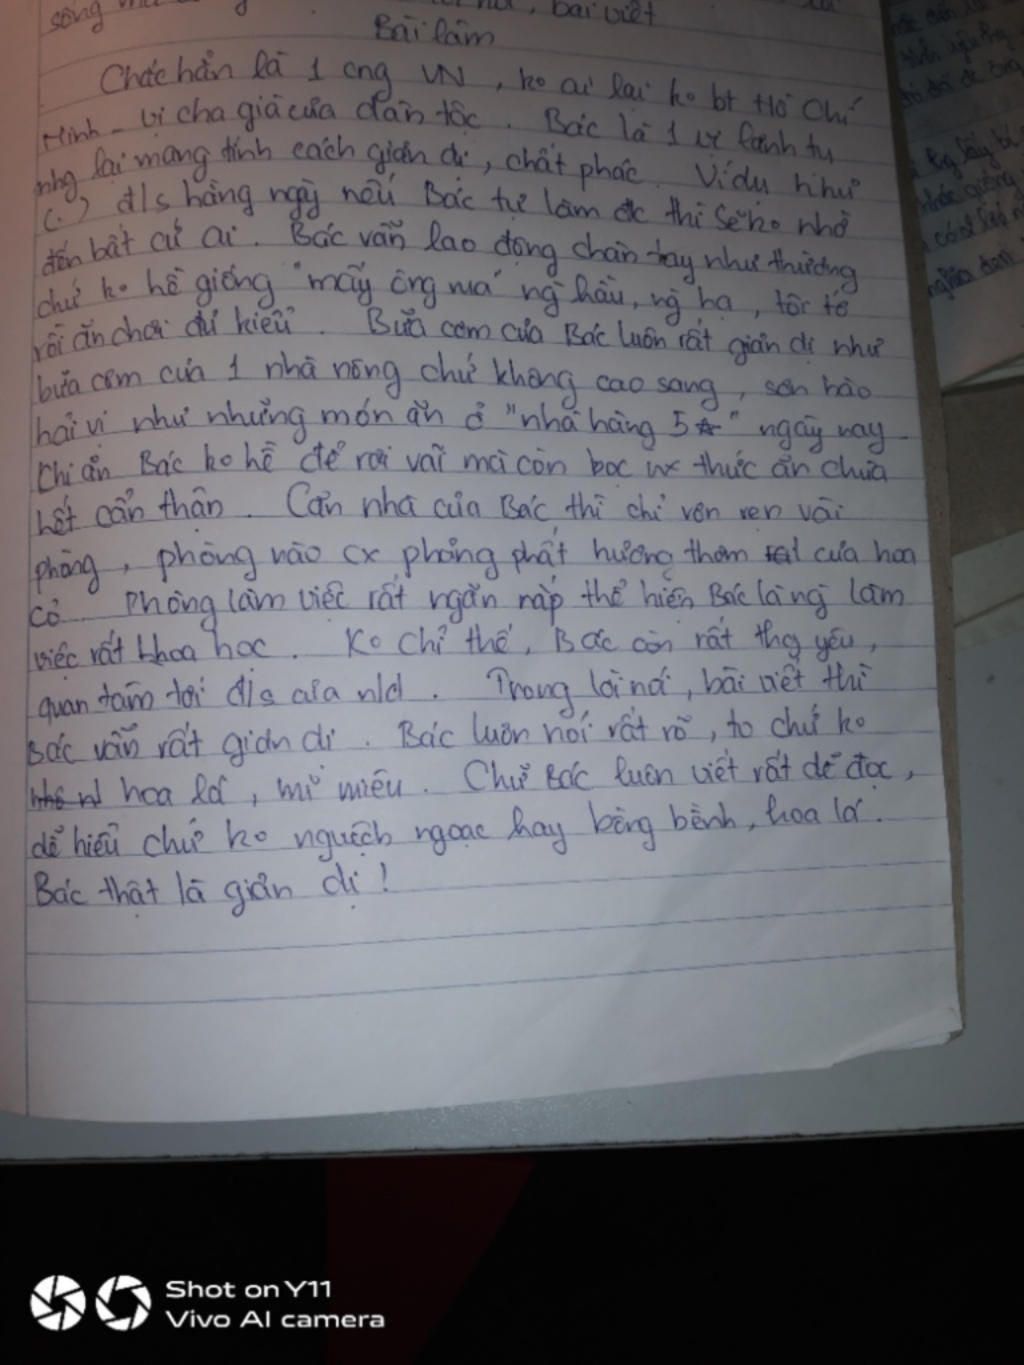 sống
, bài viết
Bài làm
Chắc hẳn là 1 cng VN, ko ai lại ko bt Hồ Chí
Minh - vị cha già của dân tộc. Bác là 1 vị lãnh tụ
nhg lại mang tính cách giản dị, chất phác. Ví dụ như
(.) đ/s hằng ngày nếu Bác tự làm đc thì sẽ ko nhờ
đến bất cứ ai. Bác vẫn lao động chân tay như thường
chứ ko hề giống "mấy ông vua" ng hầu, ng hạ, tôi tớ
rồi ăn chơi đủ kiểu. Bữa cơm của Bác luôn rất giản dị như
bữa cơm của 1 nhà nông chứ không cao sang, sơn hào
hải vị như những món ăn ở "nhà hàng 5☆" ngày nay.
Khi ăn Bác ko hề để rơi vãi mà còn bọc thức ăn chưa
hết cẩn thận. Căn nhà của Bác thì chỉ vỏn vẹn vài
phòng, phòng nào cx phảng phất hương thơm của hoa
cỏ. Phòng làm việc rất ngăn nắp thể hiện Bác là ng làm
việc rất khoa học. Ko chỉ thế, Bác còn rất thg yêu,
quan tâm tới đ/s của nld. Trong lời nói, bài viết thì
Bác vẫn rất giản dị. Bác luôn nói rất rõ, to chứ ko
hoa lá, mĩ miều. Chữ Bác luôn viết rất dễ đọc,
dễ hiểu chứ ko nguệch ngoạc hay bồng bềnh, hoa lá.
Bác thật là giản dị!
Shot on Y11
Vivo AI camera